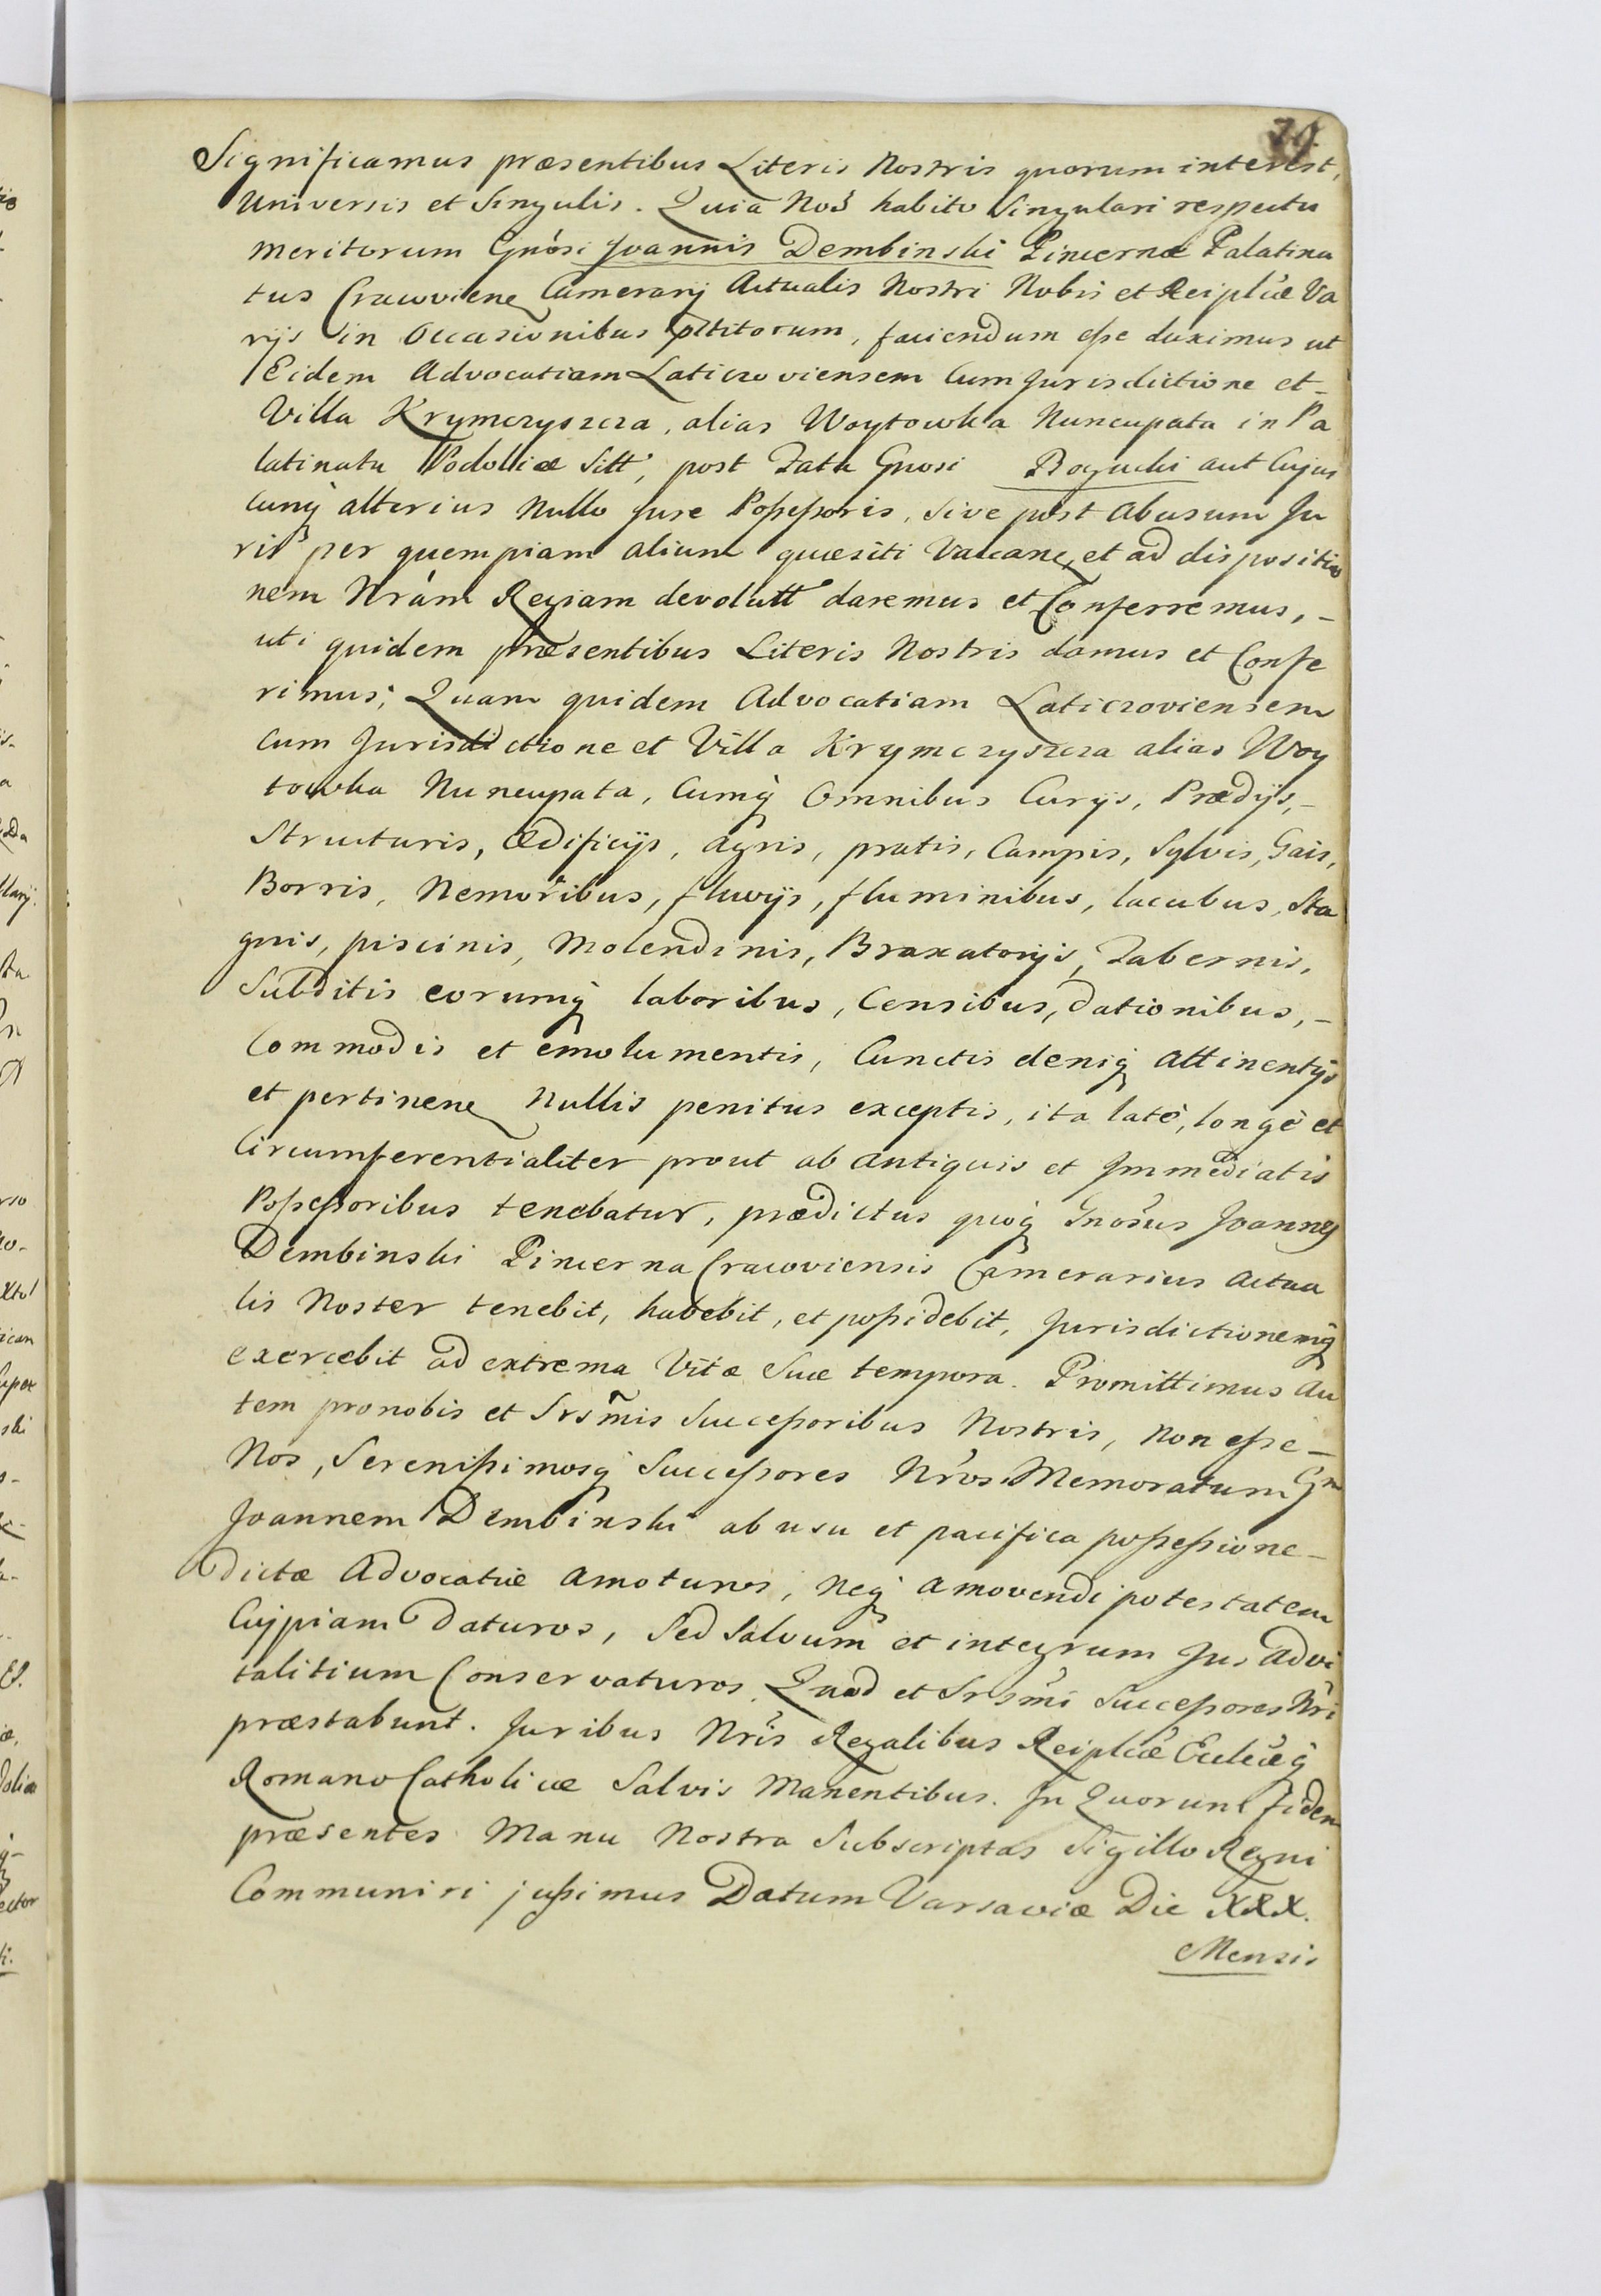 Significamus præsentibus Literis Nostris quorum interest,
Universis et Singulis. Quia Nos habito Singulari respectu
meritorum Gnósi Joannis Dembinski Pincernæ Palatina
tus Cracoviene Camerarij Actualis Nostri Nobis et Reiplicæ Va
rijs in Occasionibus pttitorum, faciendum eße duximus ut
Eidem Advocatiam Laticzoviensem Cum Jurisdictione et -
Villa Krymczyszcza, alias Woytowka Nuncupata in Pa
latinatu Podoliæ Sitt, post Fata Gnosi Bogucki aut Cujus
cunq alterius Nullo Jure Poßeßoris, Sive post Abusum Ju
ris per quempiam alium quæsiti Vacane, et ad dispositio
nem Nrám Regiam devolutt daremus et Conferremus, -
uti quidem præsentibus Literis Nostris damus et Confe
rimus; Quam quidem Advocatiam Laticzoviensem
cum Jurisdictione et Villa Krymczyszcza alias Woy
towka Nuncupata, Cumq Omnibus Curijs, Prædijs, -
Structuris, Ædificijs, Agris, pratis, Campis, Sylvis, Gais,
Borris, Nemoribus, fluvijs, fluminibus, lacubus, Sta
gnis, piscinis, Molendinis, Braxatorijs, Tabernis,
Subditis eorumq laboribus, Censibus, dationibus, -
Commodis et emolumentis, Cunctis deniq attinentijs
et pertinene Nullis penitus exceptis, ita latè, longè et
Circumferentialiter prout ab antiquis et Immediatis
Poßeßoribus tenebatur, prædictus quoq Gnosus Joannes
Dembinski Pincerna Cracoviensis Camerarius Actua
lis Noster tenebit, habebit, et poßidebit, Jurisdictionemq
exercebit ad extrema Vitæ Suæ tempora. Promittimus Au
tem pro nobis et Srsmis Succeßoribus Nostris, Non eße -
Nos, Serenißimosq Succeßores Nros Memoratum Gn
Joannem Dembinski ab usu et pacifica poßeßione -
dictæ Advocatiæ amoturos, Neq amovendi potestatem
Cujpiam daturos, Sed Salvum et integrum Jus Advi
talitium Conservaturos. Quod et Srsmi Succeßores Nri
præstabunt. Juribus Nris Regalibus Reiplicæ Ecclicæq
Romano Catholicæ Salvis Manentibus. In Quorum fidem
præsentes Manu Nostra Subscriptas Sigillo Regni
Communiri jußimus Datum Varsaviæ Die XXX.
Mensis